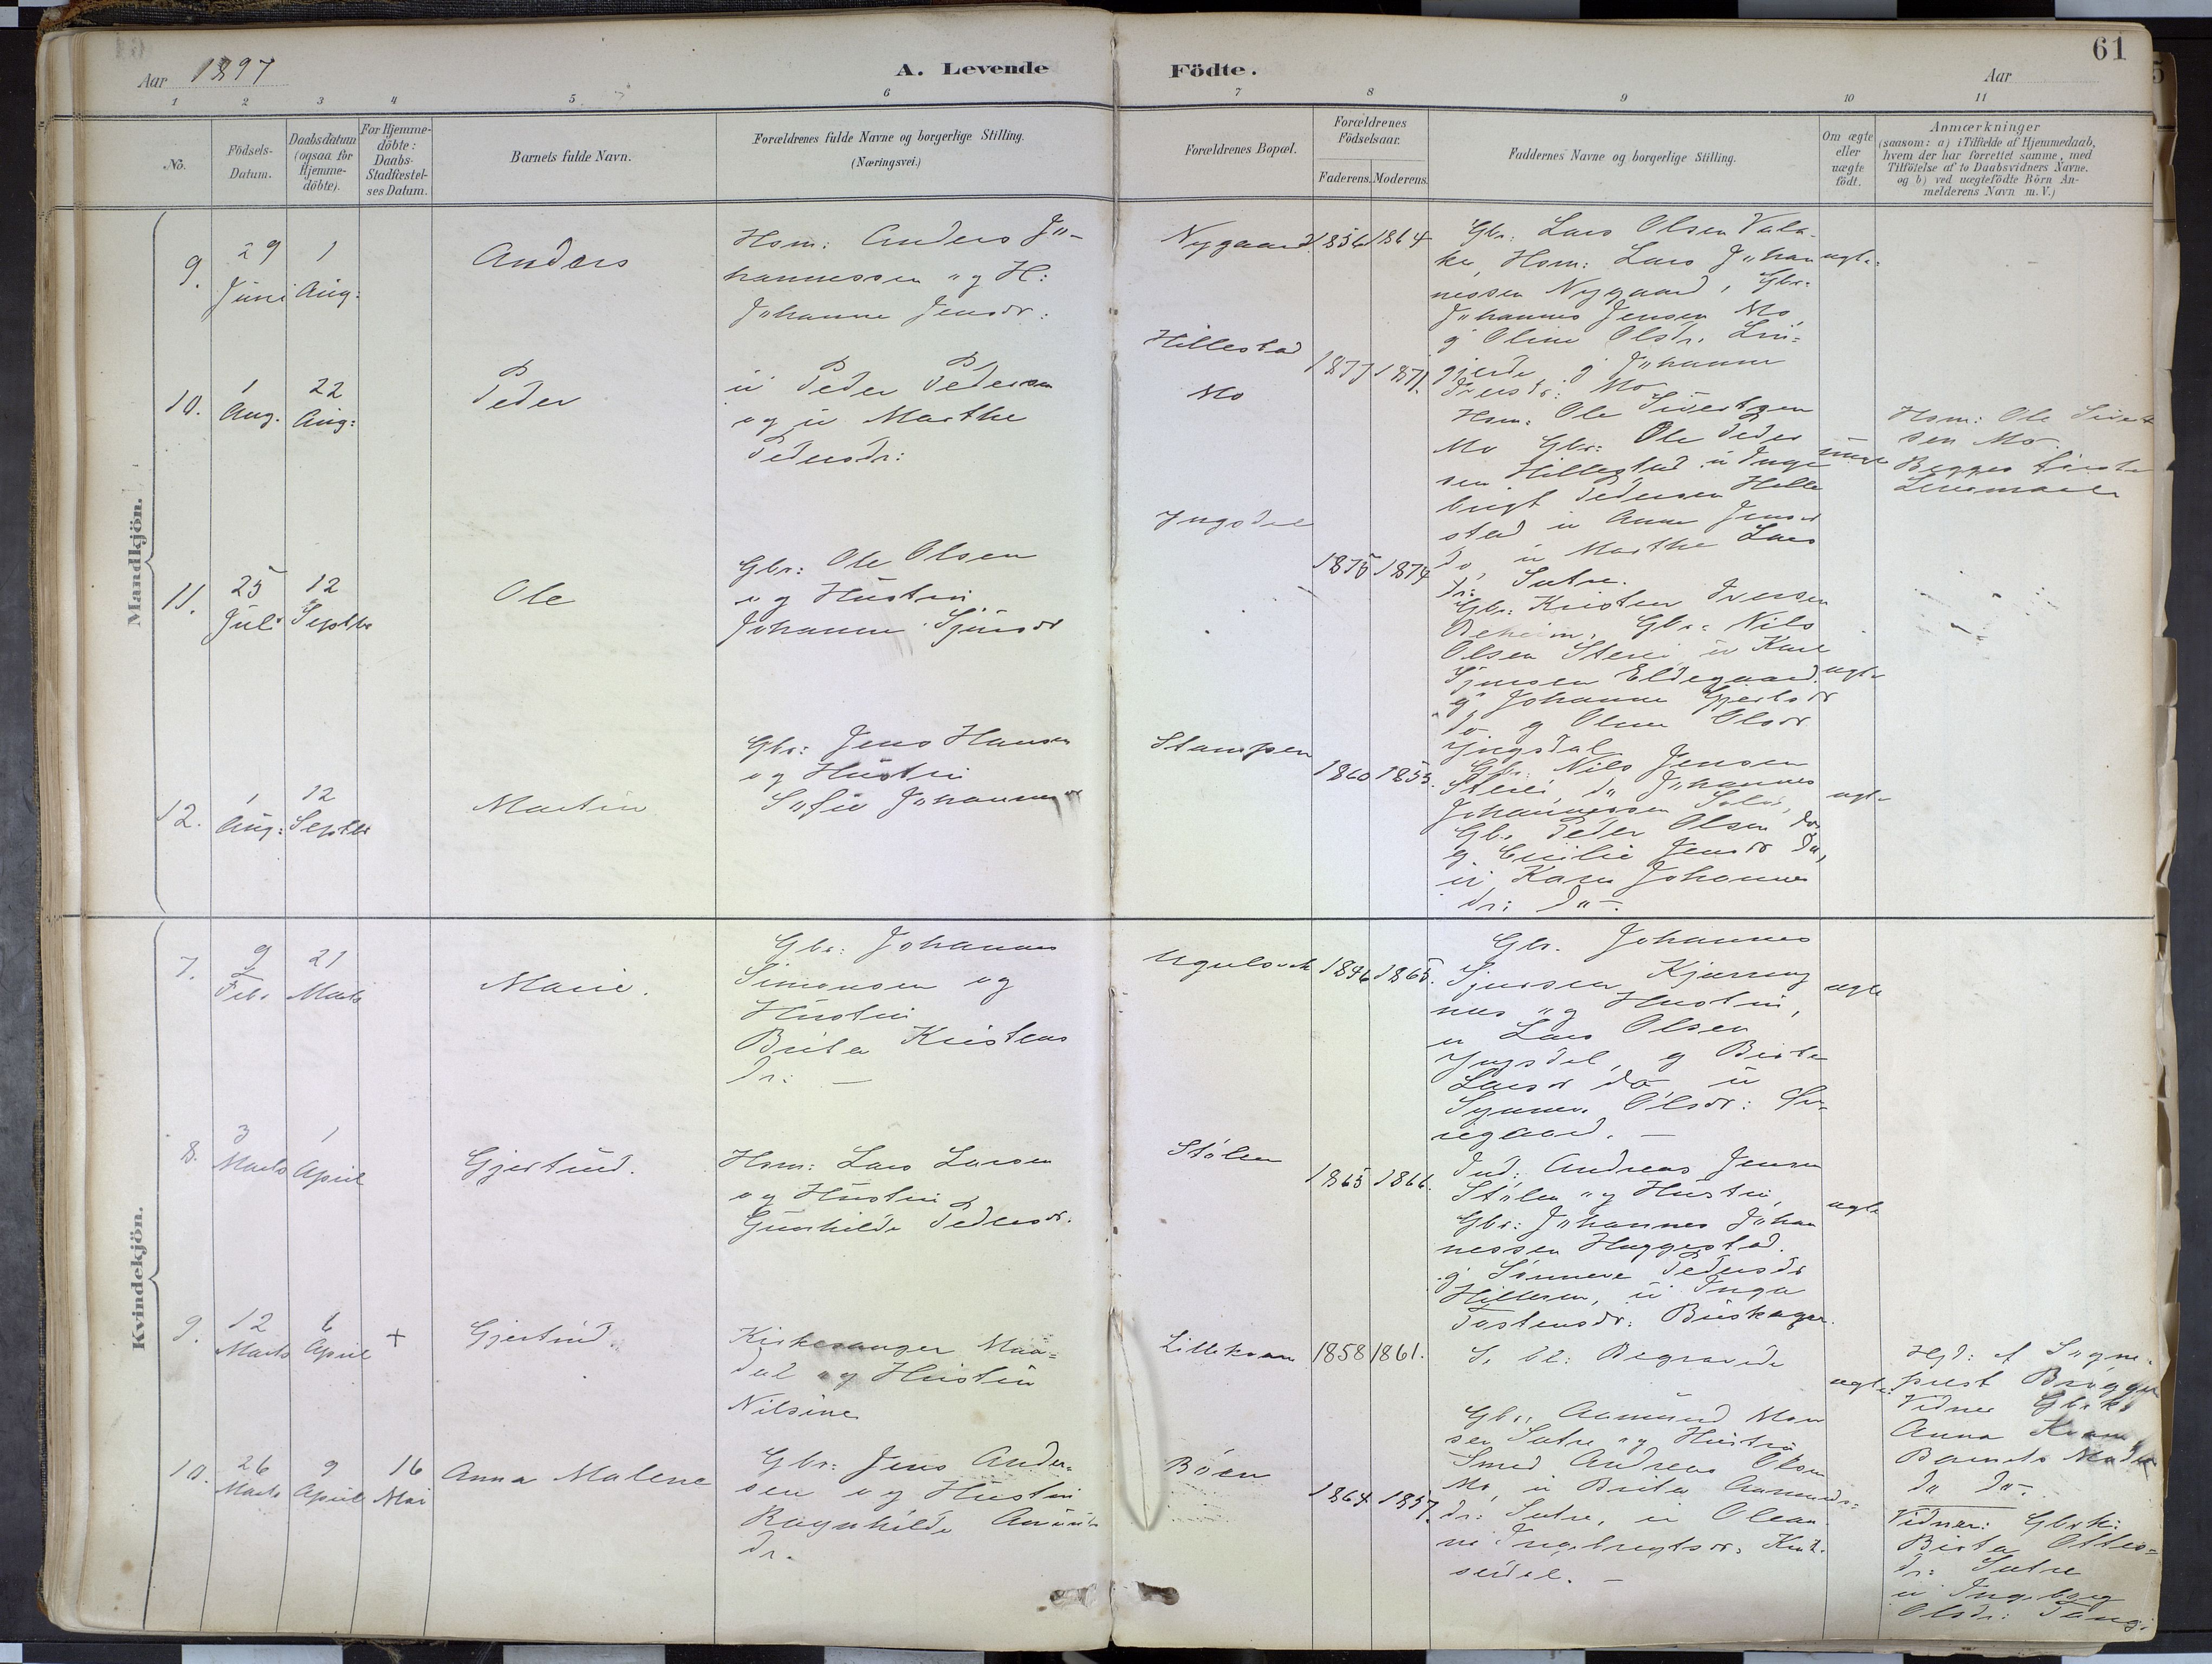 61
Aar 1897
A. Levende Födte.
Aar
1 2 3 4 5 6 7 8 9 10 11
No.
Födsels-
Datum.
Daabsdatum
(ogsaa for
Hjemme-
döbte).
For Hjemme-
döbte:
Daabs-
Stadfæstel-
ses Datum.
Barnets fulde Navn.
Forældrenes fulde Navne og borgerlige Stilling.
(Næringsvei.)
Forældrenes Bopæl.
Forældrenes
Födselsaar.
Faderens. Moderens.
Faddernes Navne og borgerlige Stilling.
Om ægte
eller
uægte
födt.
Anmærkninger
(saasom: a) i Tilfælde af Hjemmedaab,
hvem der har forrettet samme, med
Tilföielse af to Daabsvidners Navne.
og b) ved uægtefödte Börn An-
melderens Navn m. V.)
Mandkjön.
9.
29
Juni
1
Aug:
Anders
Hsm: Anders Jo-
hannessen og H:
Johanne Jensdr:
Nygaard
1856 1864
Gbr: Lars Olsen
Hsm: Lars Johan
nessen Nygaard, Gbr:
Johannes Jensen Mo,
g Oline Olsdr.
g Johanne
Mo
ægte
10.
1
Aug.
22
Aug:
Peder
u Peder Pedersen
og u Marthe
Pedersdr:
Hillestad
Mo
1877 1871.
Hsm: Ole Sivertsen
Mo Gbr: Ole Peder
sen Hillestad u Inge
brigt Pedersen Hille
stad u Anne Jensd
do, u Marthe Lars
dr: Sætre.
Hsm: Ole Sivert
sen Mo.
Begges første
Leiermaal
11.
25
Juli
12
Septbr
Ole
Gbr: Ole Olsen
og Hustru
Johanne Sjursdr
Yngsdal
1875 1874
Gbr: Kristen Iversen
Gbr: Nils
Olsen u Karl
Sjursen Eldegaard
g Johanne Gjertsdr
do g Oline Olsdr
Yngsdal
ægte
12.
1
Aug:
12
Septbr
Martin
Gbr: Jens Hansen
og Hustru
Sofie Johannesdr
Stampen
1860 1853.
Gbr: Nils Jensen
do Johannes
Johannessen
Gbr. Peder Olsen do
g. Cecilie Jensdr Do,
u Karen Johannes
dr: do-.
ægte
Kvindekjön.
7.
9
Febr
21
Marts
Marie.
Gbr: Johannes
Simonsen og
Hustru
Brita Kristens
dr: -
1846 1865.
Gbr. Johannes
Sjursen
nes og Hustru,
u Lars Olsen
Yngsdal, g Brita
Larsdr do u
Synneve Olsdr:
ægte
8.
3
Marts
1
April
Gjertrud.
Hsm: Lars Larsen
og Hustru
Gunhilde Pedersdr.
Stölen
1865 1866.
Ind: Andreas Jensen
Stölen og Hustru,
Gbr: Johannes Johan
nessen Haggestad.
g Sönneve Pedersdr
u Inga
Tostensdr:
ægte
9.
12
Marts
6
April
+
Gjertrud.
Kirkesanger Maa=
dal og Hustru
Nilsine
Lillekvam
1858 1861.
S. bl: Begravede
ægte
Hjd: af Sogne-
prest Brøgger
Vidner Gbrk.
Anna Kvam
Barnets Moder
do do-.
10.
26
Marts
9
April
16
Mai
Anna Malene
Gbr: Jens Ander-
sen og Hustru
Ragnhilde Amunds
dr.
Böen
1864 1857.
Gbr. Aamund Mon
sen Sætre og Hustru
Smed Andreas Olsen
Mo, u Brita Aamunds=
dr: Sætre, u Olean
na Ingebrigtsdr.
Vidner: Gbrk:
Brita Ottes=
dr: Sætre
u Ingeborg
Olsdr: